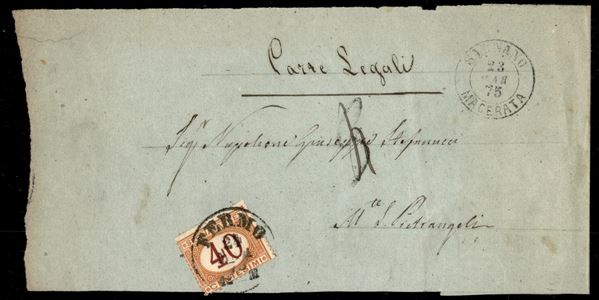 Carte Legali
23
MAR
75
MACERATA
Sigr Napoleone Giuseppe Stefanucci
Mte S. Pietrangeli
FERMO
40